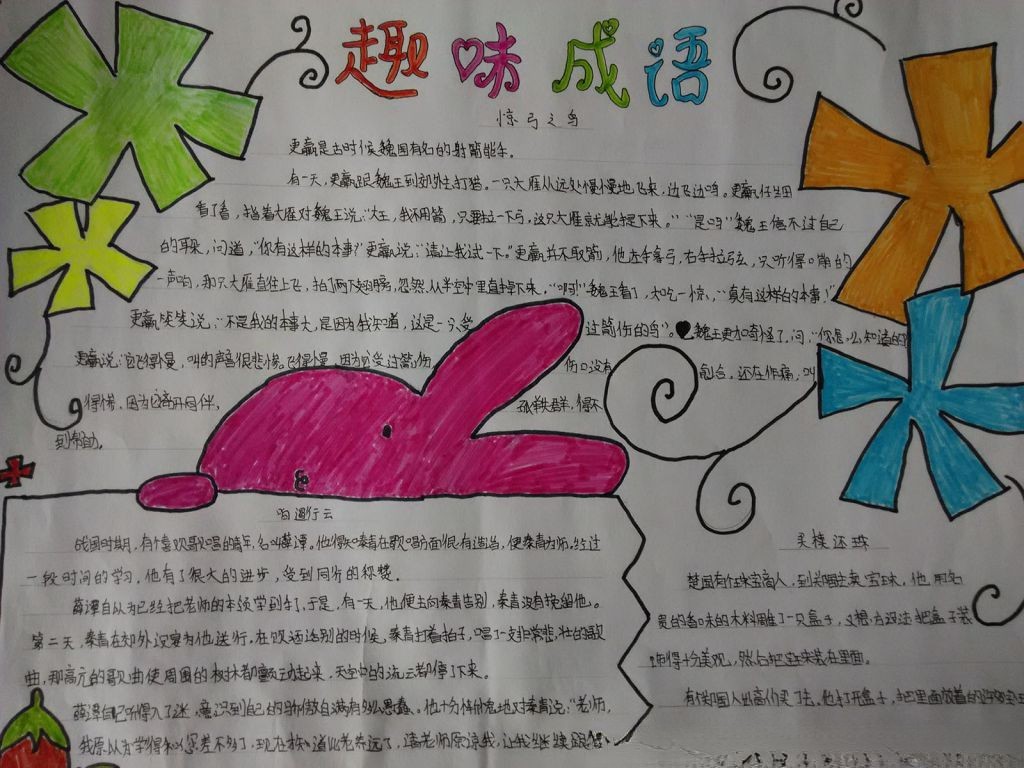 趣味成语
惊弓之鸟
更羸是古时候魏国有名的射箭能手。
有一天,更羸跟魏王到郊外去打猎。一只大雁从远处慢慢地飞来,边飞边鸣。更羸仔细
看了看,指着大雁对魏王说:“大王,我不用箭,只要拉一下弓,这只大雁就能掉下来。”“是吗”魏王信不过自己
的耳朵,问道,“你有这样的本事?”更羸说:“请让我试一下。”更羸并不取箭,他左手拿弓,右手拉弦,只听得嘣的
一声响,那只大雁直往上飞,拍了两下翅膀,忽然从半空中里直掉下来,“啊!”魏王看了,大吃一惊,“真有这样的本事!”
更羸笑笑说:“不是我的本事大,是因为我知道,这是一只受过箭伤的鸟”。魏王更加奇怪了,问:“你怎么知道的
更羸说:“它飞得慢,叫的声音很悲惨。飞得慢,因为它受过箭伤,伤口没有愈合,还在作痛,叫
得惨,因为它离开同伴,孤单失群,得不
到帮助。
响遏行云
战国时期,有个喜欢歌唱的青年,名叫薛谭。他得知秦青在歌唱方面很有造诣,便秦青为师。经过
一段时间的学习,他有了很大的进步,受到同行的称赞。
薛谭自认为已经把老师的本领学到手了,于是,有一天,他便主向秦青告别,秦青没有挽留他。
第二天,秦青在郊外设宴为他送行,在饮酒送别的时候,秦青打着拍子,唱了一支非常悲壮的歌
曲,那高亢的歌曲使周围的树木都颤动起来,天空中的流云都停了下来。
薛谭自己听得入了迷,意识到自己的骄傲自满有多么愚蠢。他十分惭愧地对秦青说:“老师,
我原以为学得和您差不多了,现在
请老师原谅我,让我继续跟您
买椟还珠
楚国有个珠宝商人,到郑国去卖宝珠,他用名
贵的香味的木料雕了一只盒子,又想方设法把盒子装
饰得十分美观,然后把宝珠装在里面。
有个郑国人出高价买了去,他打开盒子,把里面放着的